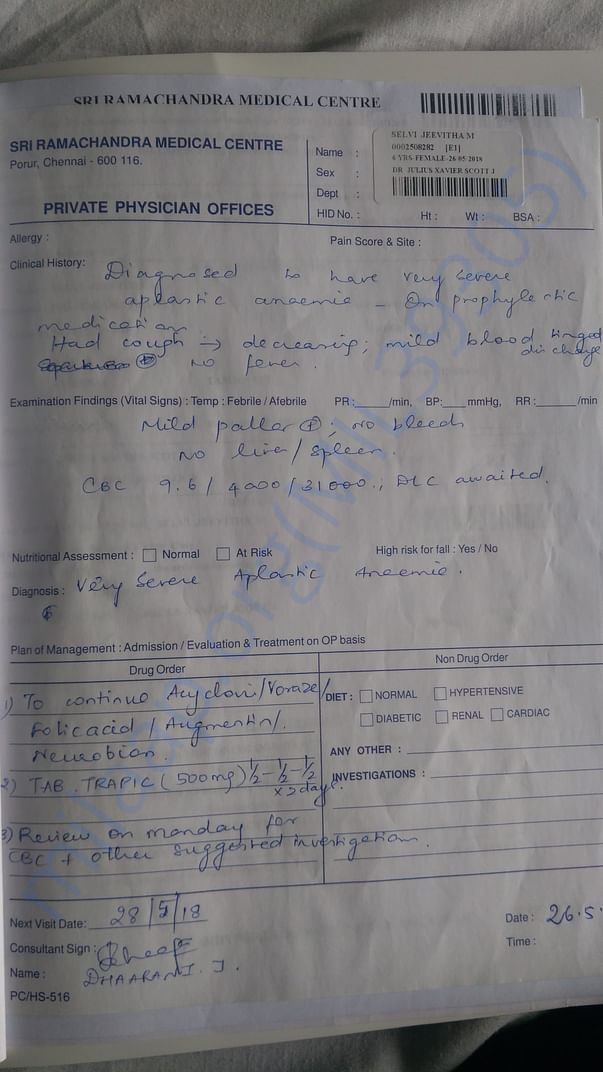 SRI RAMACHANDRA MEDICAL CENTRE
SRI RAMACHANDRA MEDICAL CENTRE
Porur, Chennai - 600 116.
PRIVATE PHYSICIAN OFFICES
Name :
Sex :
Dept :
HID No. : Ht : Wt : BSA :
SELVI JEEVITHA M
0002508282 [E1]
6 YRS-FEMALE-26-05-2018
DR JULIUS XAVIER SCOTT J
Allergy : Pain Score & Site :
Clinical History: Diagnosed to have very severe
aplastic anaemia - On prophylactic
medication
Had cough → decreasing; mild blood tinged
discharge
⊕ No fever.
Examination Findings (Vital Signs) : Temp : Febrile / Afebrile PR: /min, BP: mmHg, RR: /min
Mild pallor ⊕; no bleeds
No liver/spleen.
CBC 9.6 / 4000 / 31000; DLC awaited.
Nutritional Assessment : Normal At Risk High risk for fall : Yes / No
Diagnosis : Very Severe Aplastic Anaemia.
Plan of Management : Admission / Evaluation & Treatment on OP basis
Drug Order
1) To continue Acyclovir/Voraze/
Folic acid / Augmentin/
Neurobion.
2) TAB. TRAPIC (500mg) ½-½-½
x 2 days.
3) Review on monday for
CBC + other suggested investigation.
Non Drug Order
DIET : NORMAL HYPERTENSIVE
DIABETIC RENAL CARDIAC
ANY OTHER :
INVESTIGATIONS :
Next Visit Date: 28/5/18
Consultant Sign :
Name : DHAARANI. J.
PC/HS-516
Date : 26.5.
Time :